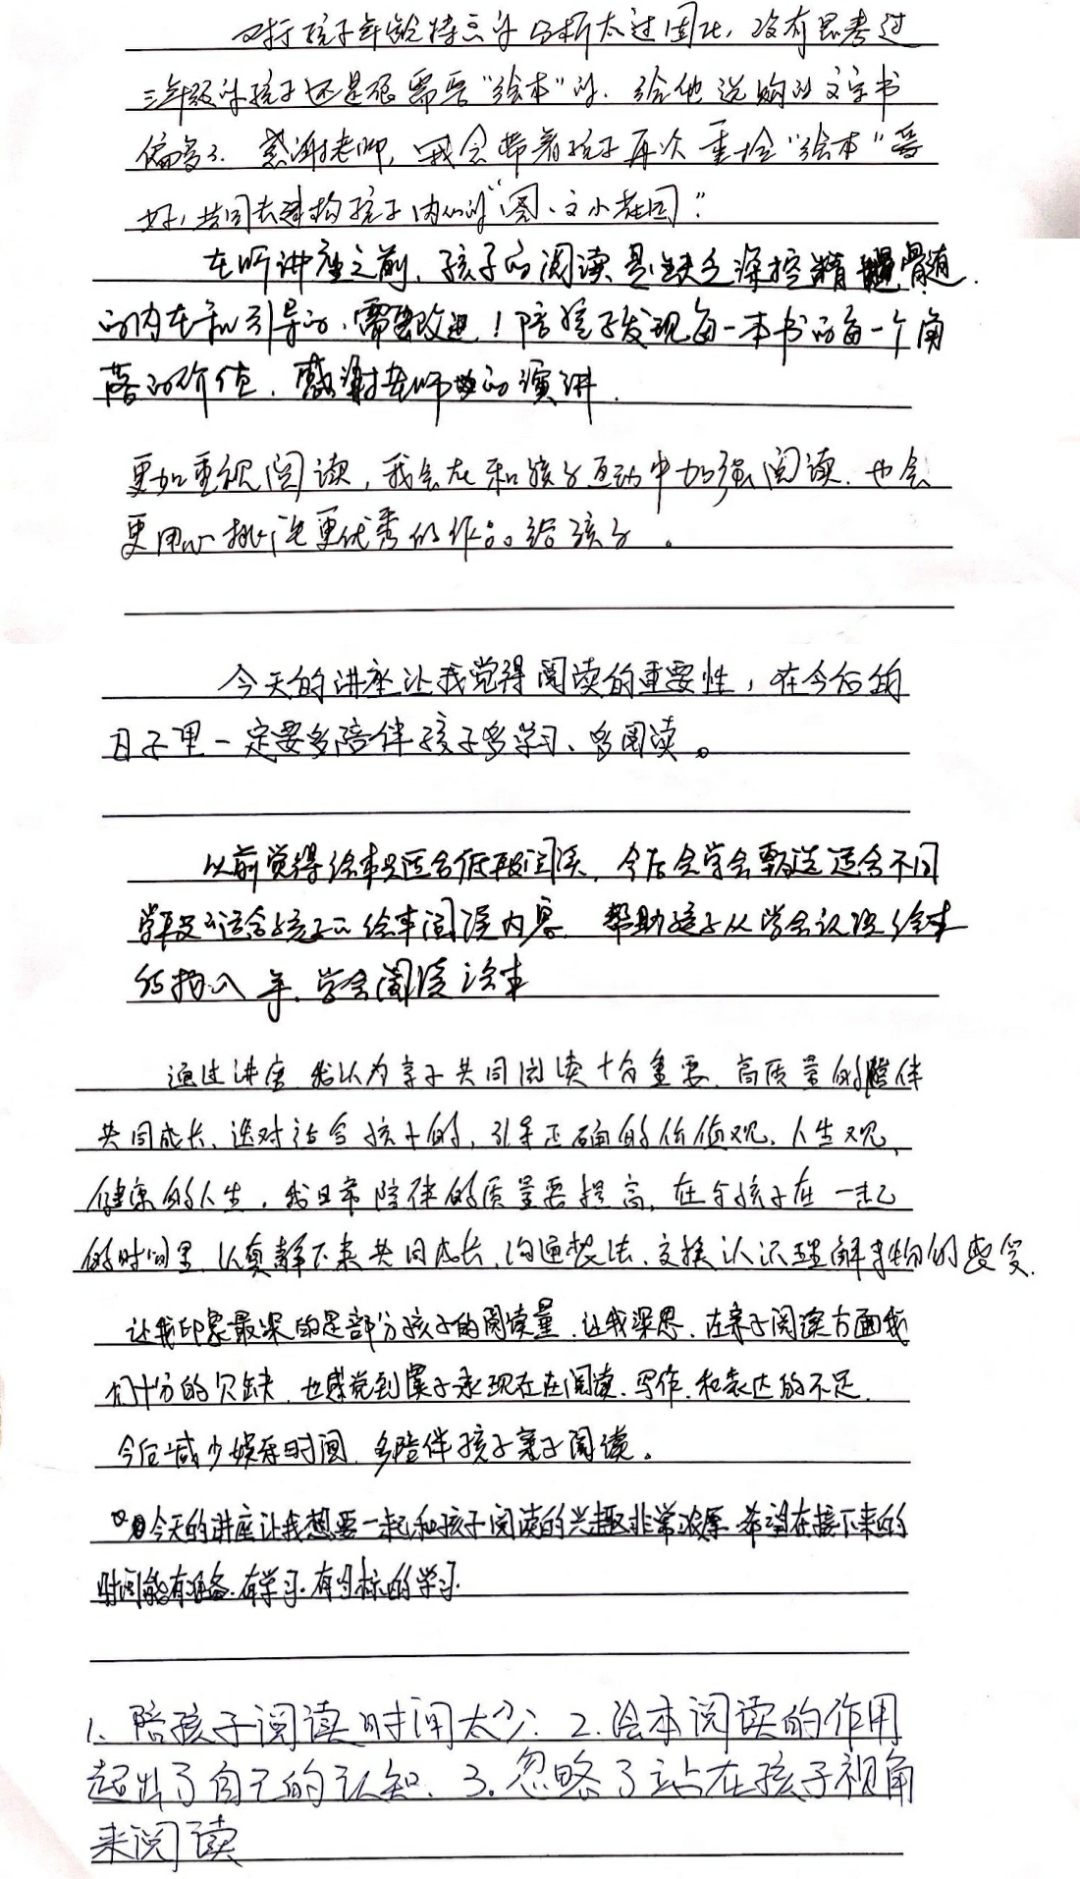 对于孩子年龄特点的分析太过固化，没有思考过
三年级的孩子还是很需要“绘本”的.给他选购的文字书
偏多了.感谢老师,我会带着孩子再次重拾“绘本”
好,共同去建构孩子内心的“图、文小花园”
在听讲座之前,孩子的阅读是缺乏深挖精髓
的内在和引导的,需要改进!陪孩子发现每一本书的每一个角
落的价值.感谢老师的演讲.
更加重视阅读,我会在和孩子互动中加强阅读.也会
更用心挑选更优秀的作品给孩子。
今天的讲座让我觉得阅读的重要性,在今后的
日子里一定要多陪伴孩子多学习、多阅读。
以前觉得绘本只适合低年段阅读,今后会学会甄选适合不同
学段的适合孩子的绘本阅读内容,帮助孩子从学会认识绘本
的,学会阅读绘本
通过讲座我认为亲子共同阅读十分重要.高质量的陪伴
共同成长,选对适合孩子的,引导正确的价值观、人生观、
健康的人生,我日常陪伴的质量要提高,在与孩子在一起
的时间里,认真静下来共同成长,沟通想法,交换认识理解事物的感受.
让我印象最深的是部分孩子的阅读量.让我深思.在亲子阅读方面我
们十分的欠缺.也感觉到现在在阅读.写作.和表达的不足.
今后减少娱乐时间.多陪伴孩子亲子阅读。
今天的讲座让我想要一起和孩子阅读的兴趣非常浓厚.希望在接下来的
时间能有准备.有学习.有目标的学习.
1、陪孩子阅读时间太少; 2.绘本阅读的作用
超出了自己的认知. 3.忽略了站在孩子视角
来阅读